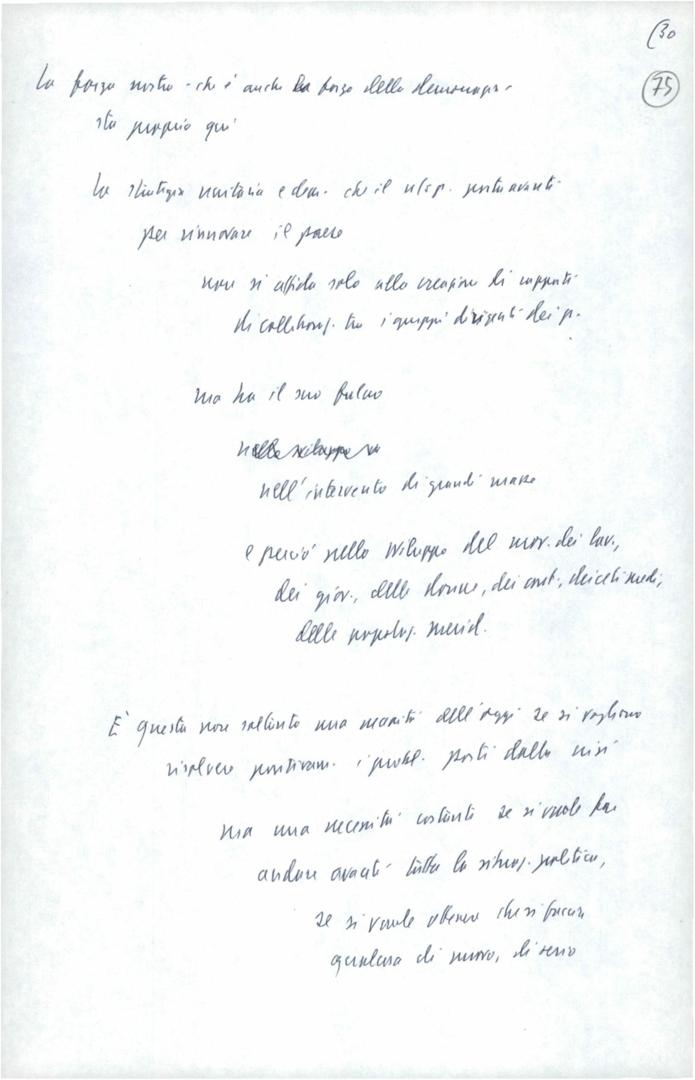 (30
75
La forza nostra - che è anche la forza della democrazia -
sta proprio qui
La strategia unitaria e dem. che il n/s p. porta avanti
per rinnovare il paese
non si affida solo alla creazione di rapporti
di collaboraz. tra i gruppi dirigenti dei p.
ma ha il suo fulcro
nello sviluppo
nell'intervento di grandi masse
e perciò nello sviluppo del mov. dei lav.,
dei giov., delle donne, dei cont., dei ceti medi,
delle popolaz. merid.
È questa non soltanto una necessità dell'oggi se si vogliono
risolvere positivam. i probl. posti dalla crisi
ma una necessità costante se si vuole far
andare avanti tutta la situaz. politica,
se si vuole ottenere che si faccia
qualcosa di nuovo, di serio